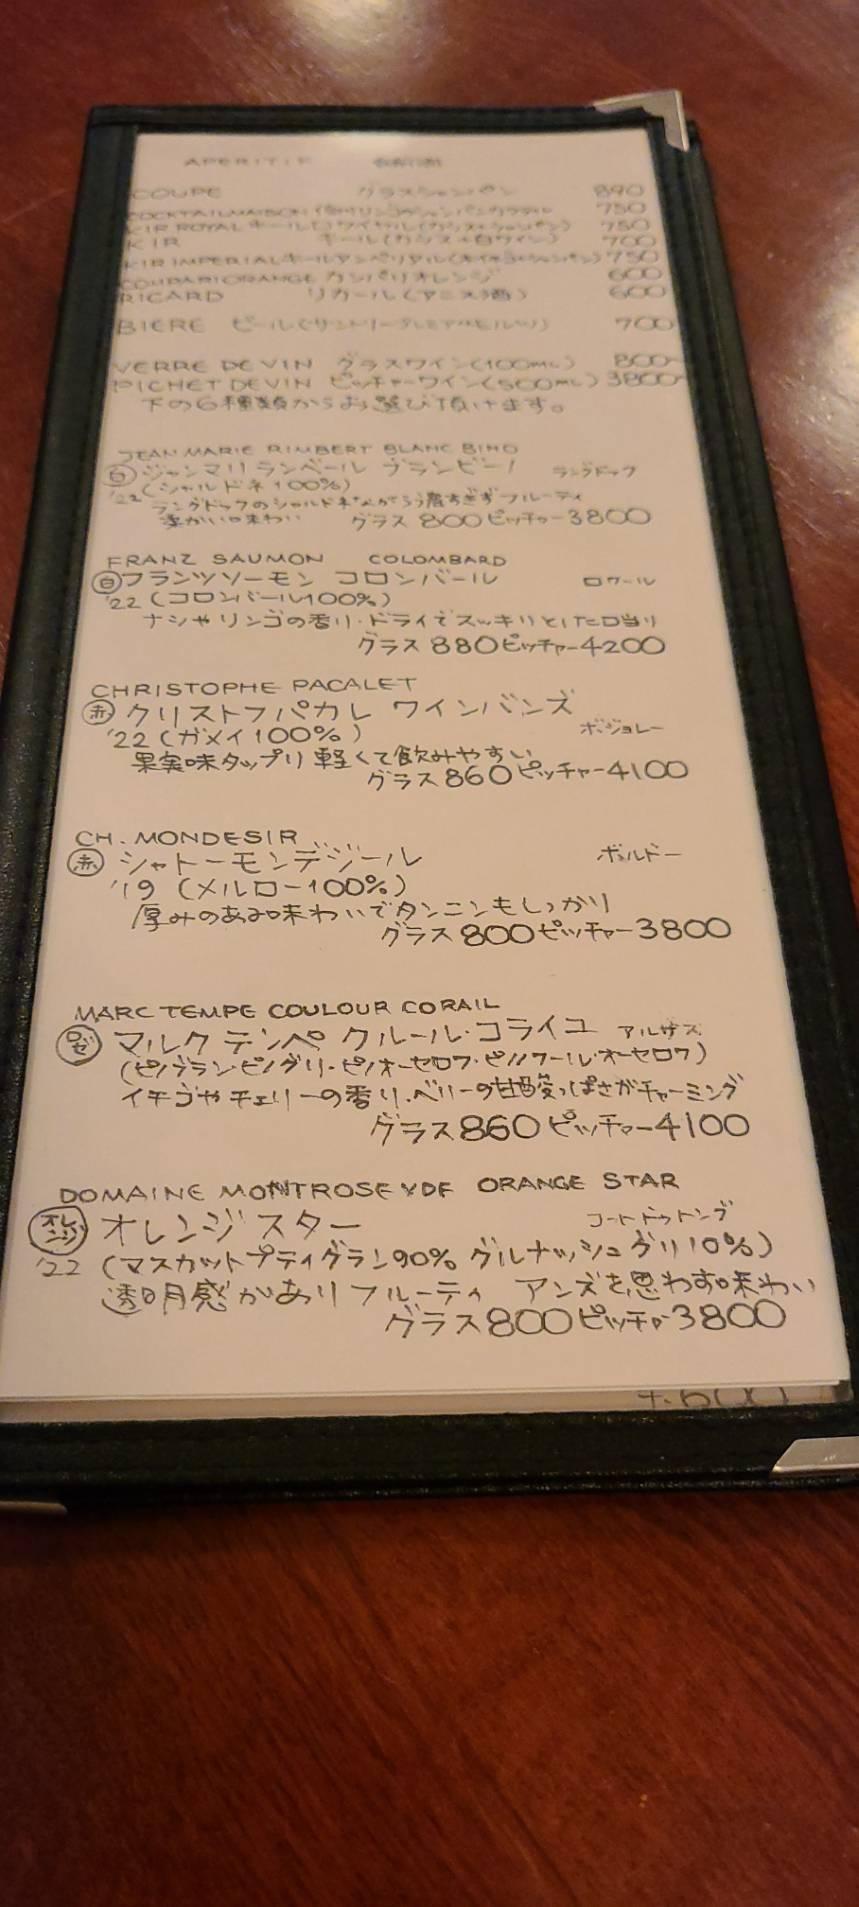 APERITIF 食前酒
COUPE グラスシャンパン 890
COCKTAIL MAISON 750
KIR ROYAL キールロワイヤル(カシス+シャンパン) 750
KIR キール(カシス+白ワイン) 700
KIR IMPERIAL キールアンペリアル 750
COMPARI ORANGE カンパリオレンジ 600
RICARD リカール(アニス酒) 600
BIERE ビール(サントリープレミアムモルツ) 700
VERRE DE VIN グラスワイン(100ML) 800~
PICHET DE VIN ピッチャーワイン(500ML) 3800~
下の6種類からお選び頂けます。
JEAN MARIE RIMBERT BLANC BINO
白 ジャンマリ ランベール ブランビーノ ラングドック
'22 (シャルドネ100%)
ラングドックのシャルドネながらう濃すぎずフルーティ
柔かい味わい グラス 800 ピッチャー3800
FRANZ SAUMON COLOMBARD
白 フランツソーモン コロンバール ロワール
'22 (コロンバール100%)
ナシやリンゴの香り・ドライでスッキリとした口当り
グラス 880 ピッチャー4200
CHRISTOPHE PACALET
赤 クリストフパカレ ワインバンズ ボジョレー
'22 (ガメイ100%)
果実味タップリ 軽くて飲みやすい
グラス 860 ピッチャー4100
CH. MONDESIR
赤 シャトーモンデジール ボルドー
'19 (メルロー100%)
厚みのある味わいでタンニンもしっかり
グラス 800 ピッチャー3800
MARC TEMPE COULOUR CORAIL
ロゼ マルク テンペ クルール・コライユ アルザス
(ピノブラン・ピノグリ・ピノオーセロワ・ピノノワール・オーセロワ)
イチゴやチェリーの香り・ベリーの甘酸っぱさがチャーミング
グラス 860 ピッチャー4100
DOMAINE MONTROSE VDF ORANGE STAR
オレンジ オレンジ スター コートドゥトング
'22 (マスカットプティグラン90% グルナッシュグリ10%)
透明感がありフルーティ アンズを思わす味わい
グラス 800 ピッチャー3800